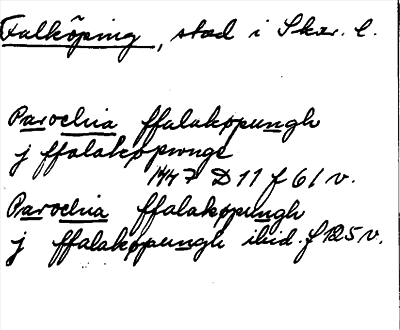 Falköping, stad i Skar. l.
Parochia ffalakøpungh
j ffalakøpunge
1447 D 11 f 61 v.
Parochia ffalakøpungh
j ffalakøpungh ibid. f 125 v.